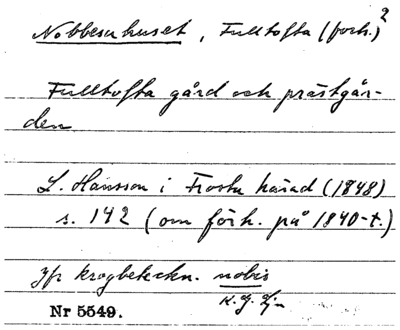 Nobbesahuset, Fulltofta (forh.)²
Fulltofta gård och prästgår-
den
L. Hansson i Frosta härad (1848)
s. 142 (om förh. på 1840-t.)
Jfr krogbeteckn. nobis
Nr 5549.